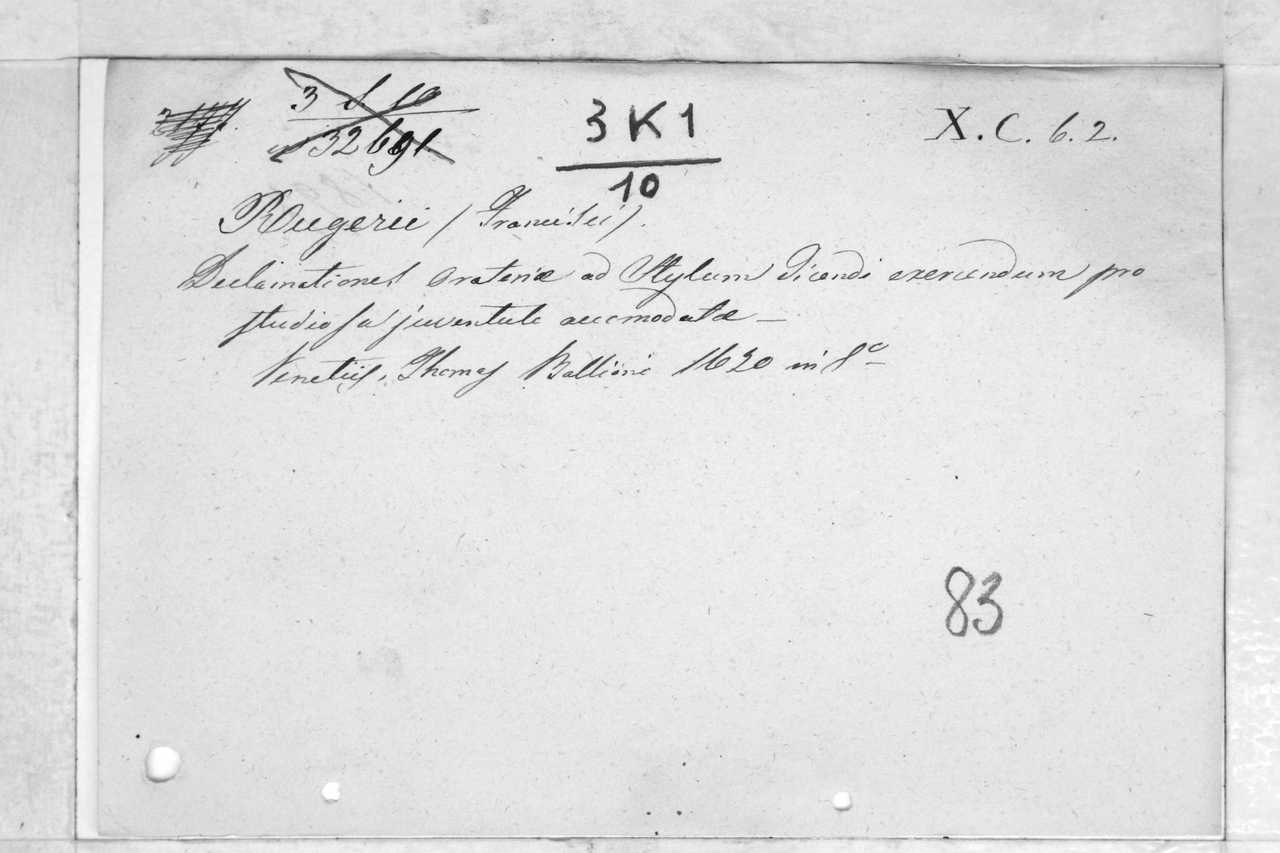 3 K 1
10
X. C. 6. 2.
Rugerii (Francisci).
Declamationes oratoriæ ad Stylum dicendi exercendum pro
studiosa juventute accomodatæ —
Venetiis, Thomas Ballioni 1620 in 8º
83